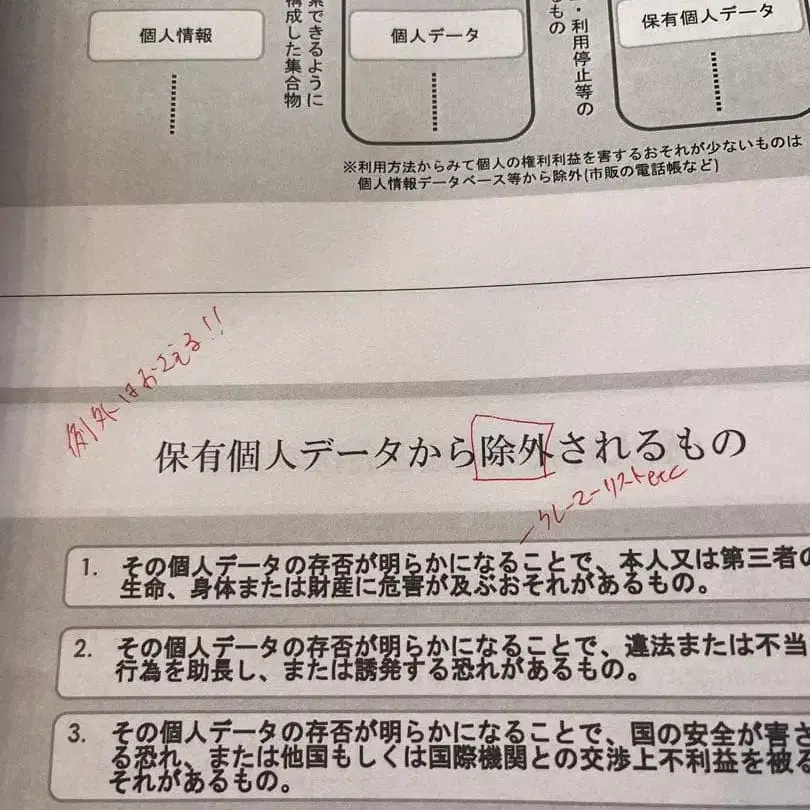 個人情報
索できるように
構成した集合物
個人データ
・利用停止等の
るもの
保有個人データ
※利用方法からみて個人の権利利益を害するおそれが少ないものは
個人情報データベース等から除外(市販の電話帳など)
例外はおさえる!!
保有個人データから除外されるもの
クレーマーリストetc
1. その個人データの存否が明らかになることで、本人又は第三者の
生命、身体または財産に危害が及ぶおそれがあるもの。
2. その個人データの存否が明らかになることで、違法または不当
行為を助長し、または誘発する恐れがあるもの。
3. その個人データの存否が明らかになることで、国の安全が害さ
る恐れ、または他国もしくは国際機関との交渉上不利益を被る
それがあるもの。